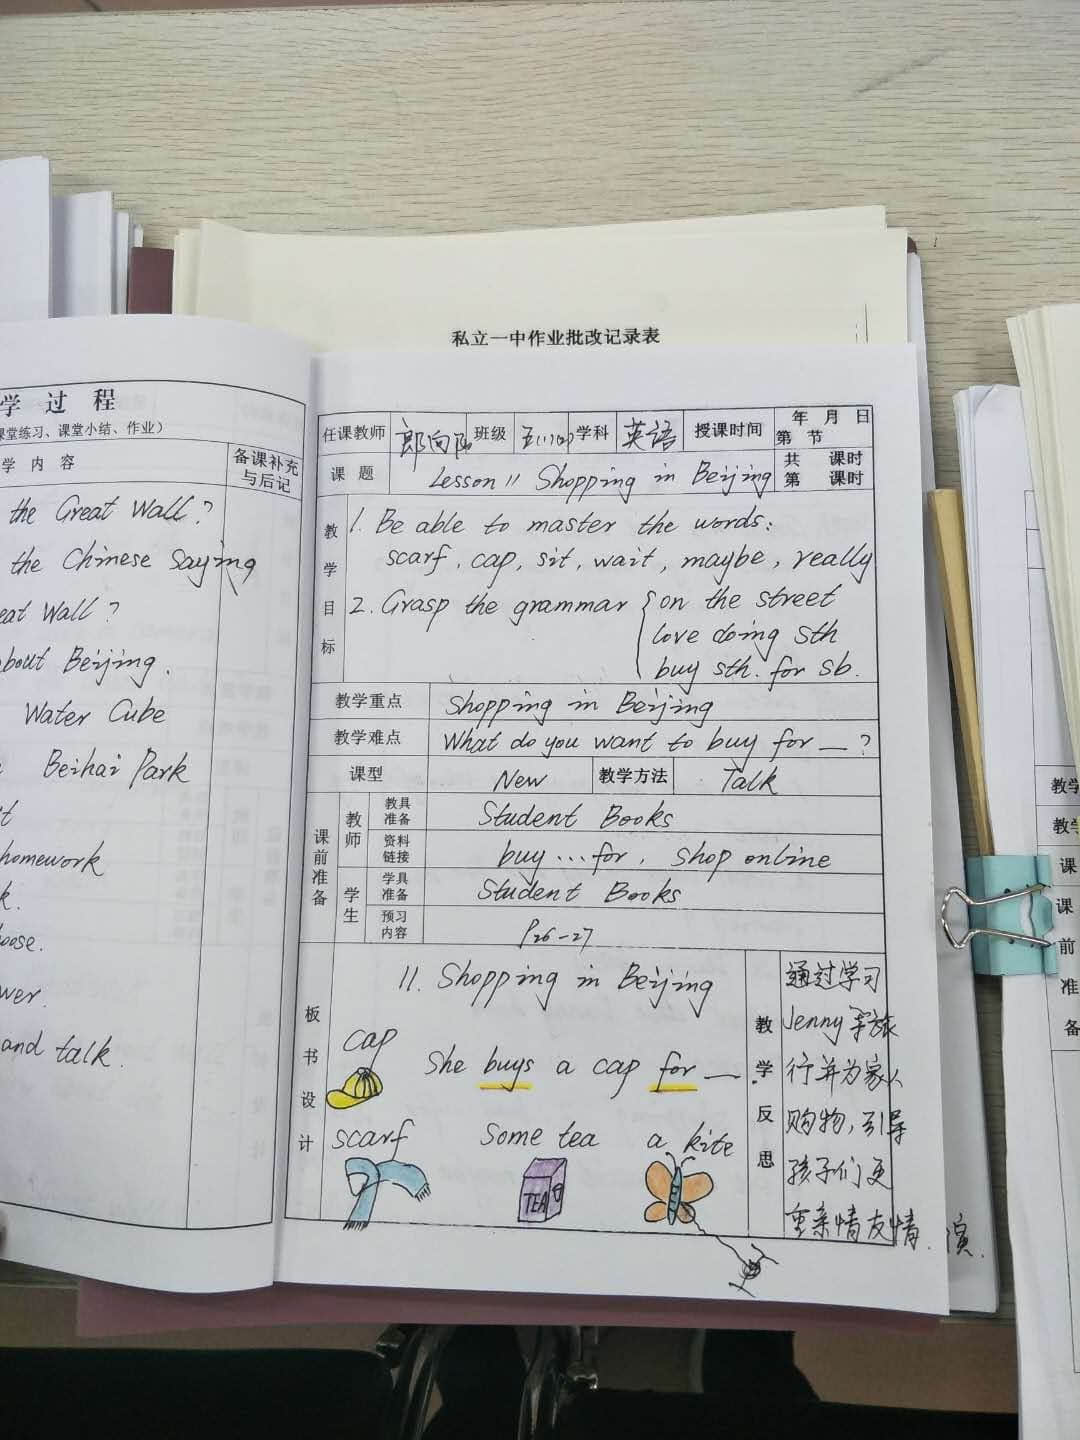 私立一中作业批改记录表
学 过 程
课堂练习、课堂小结、作业）
学 内 容
备课补充
与后记
the Great Wall?
the Chinese Saying
eat Wall?
about Beijing.
Water Cube
Beihai Park
homework
and talk.
任课教师 班级 五 学科 英语 授课时间 年 月 日
第 节
课 题 Lesson 11 Shopping in Beijing 共 课时
第 课时
教学目标
1. Be able to master the words:
scarf, cap, sit, wait, maybe, really
2. Grasp the grammar { on the street
love doing sth
buy sth. for sb.
教学重点 Shopping in Beijing
教学难点 What do you want to buy for __ ?
课型 New 教学方法 Talk
课前准备
教师
教具准备 Student Books
资料链接 buy ... for, shop online
学生
学具准备 Student Books
预习内容 P26-27
板书设计
11. Shopping in Beijing
cap
She buys a cap for __.
scarf some tea a kite
TEA
教学反思
通过学习
Jenny 旅
行并为家人
购物，引导
孩子们更
重亲情友情.
教学
教学
课
课
前
准
备